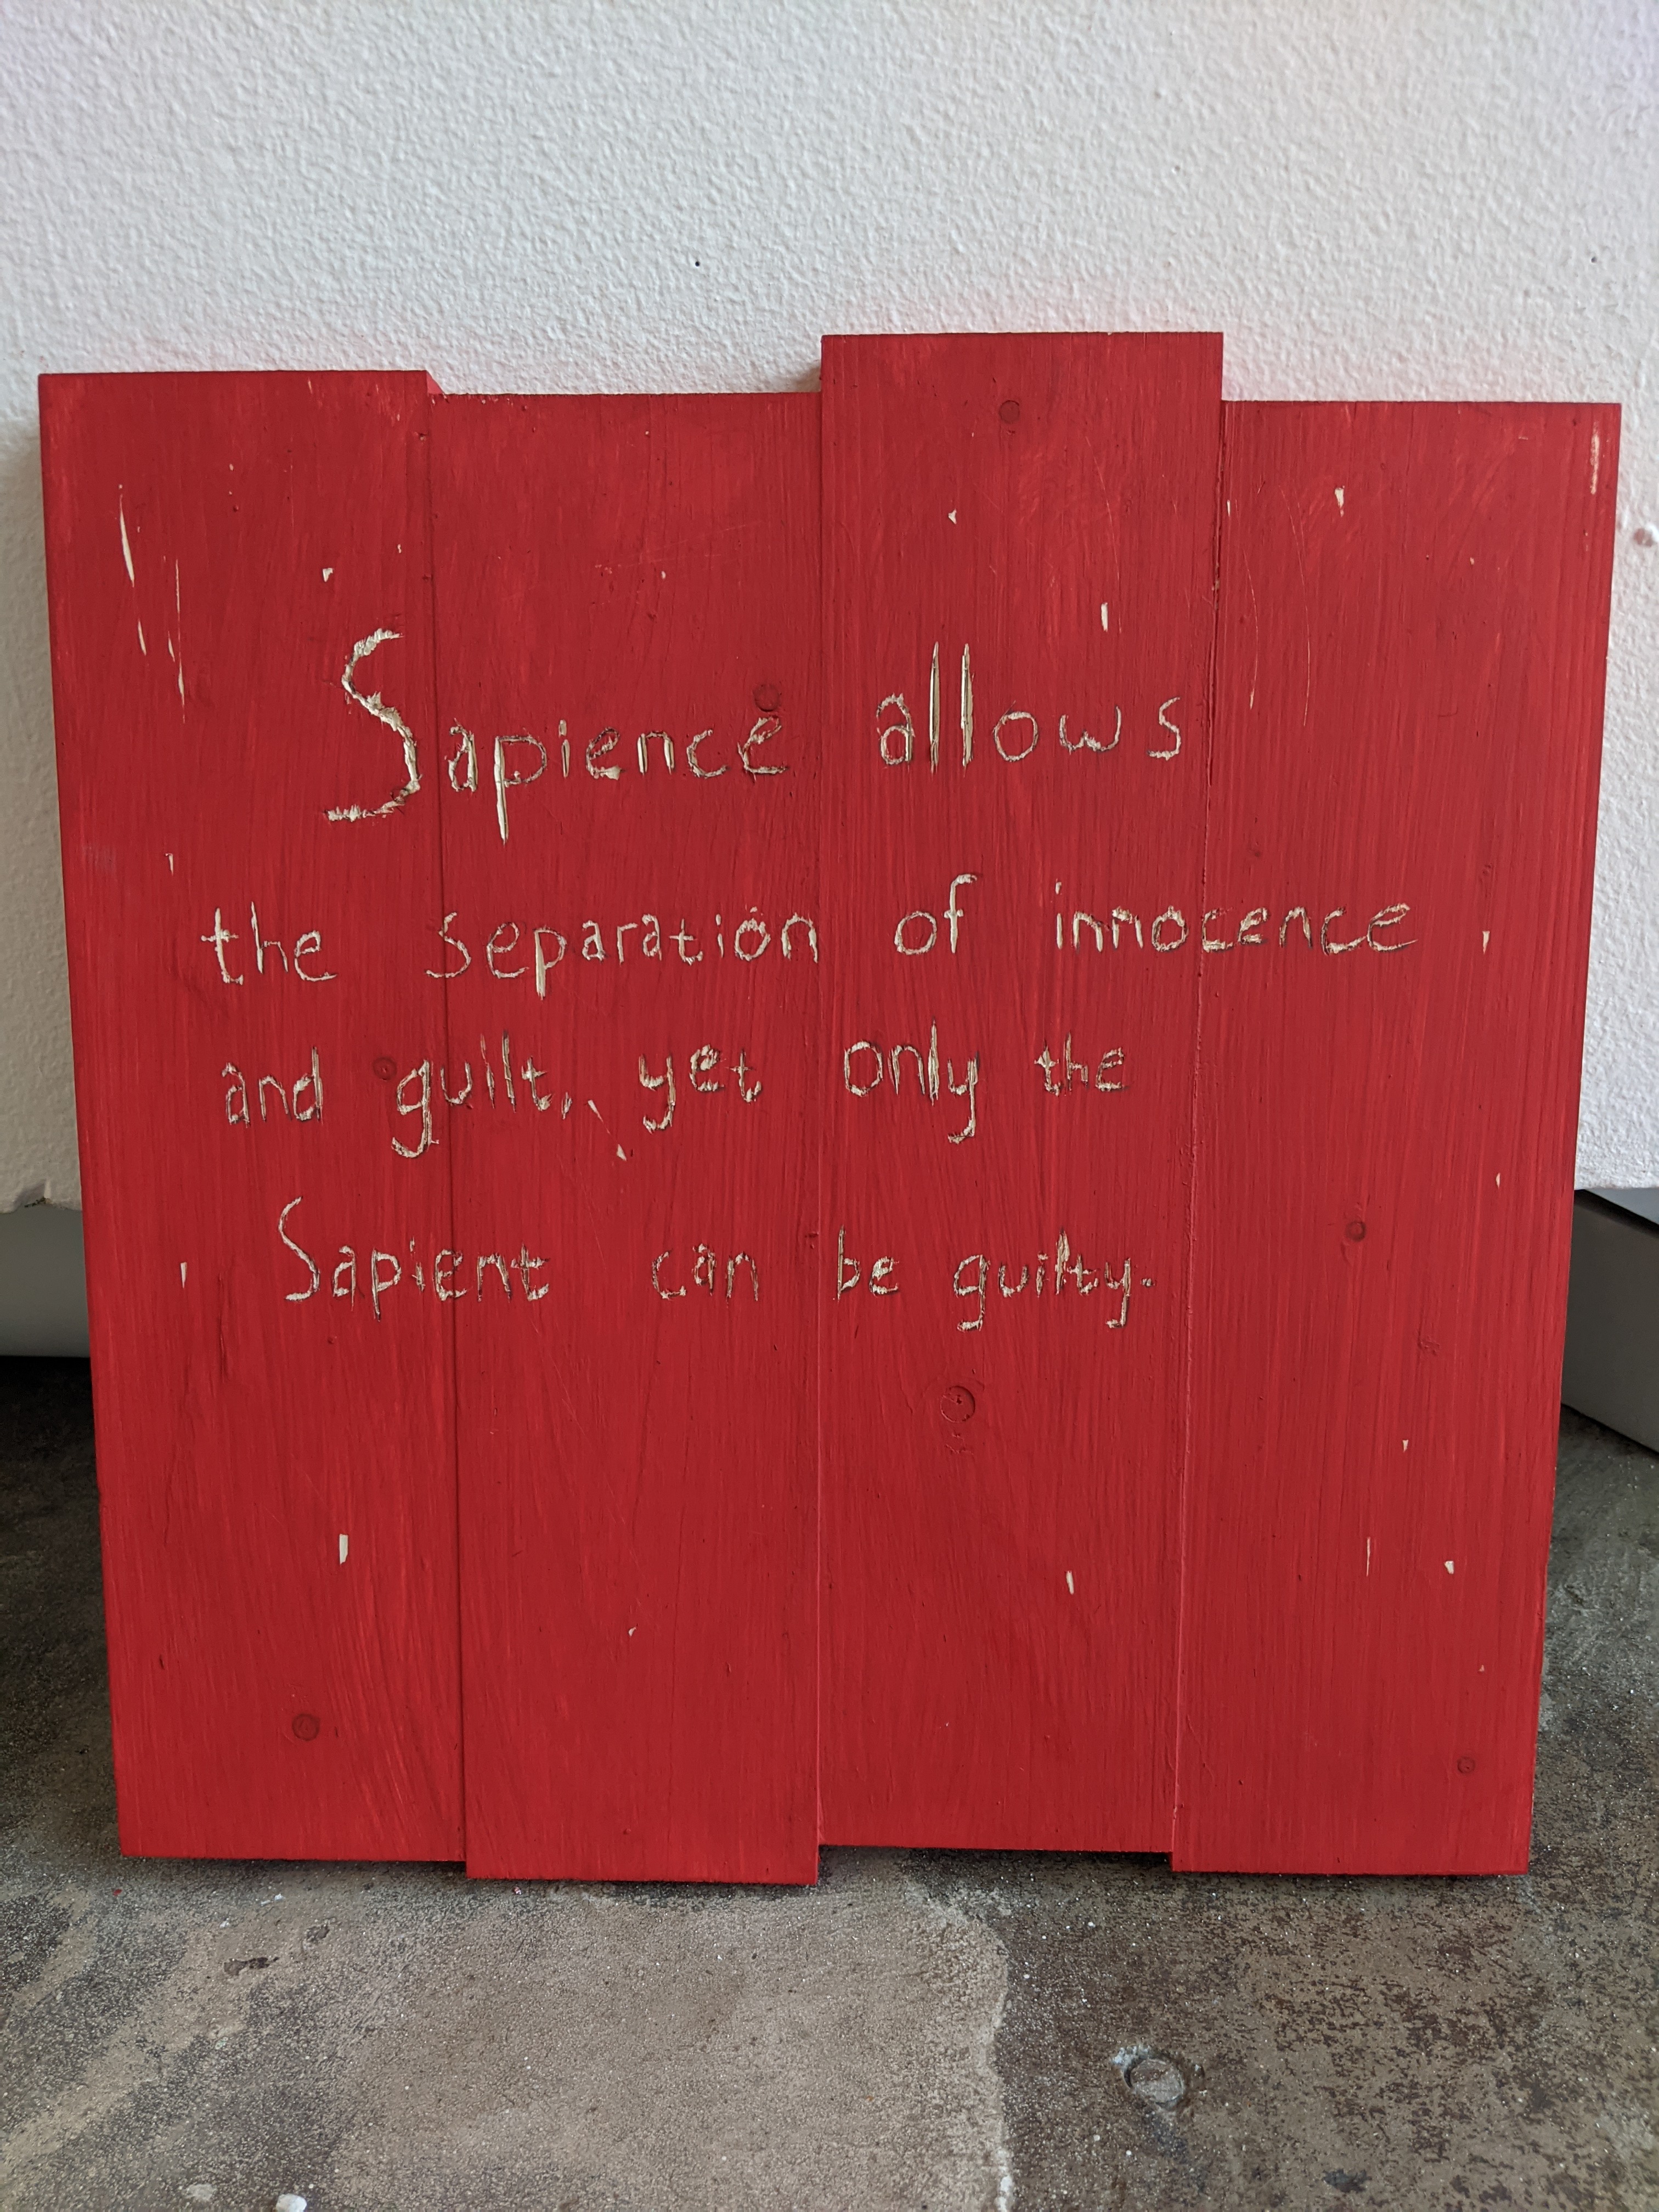 Sapience allows
the separation of innocence
and guilt, yet only the
Sapient can be guilty.